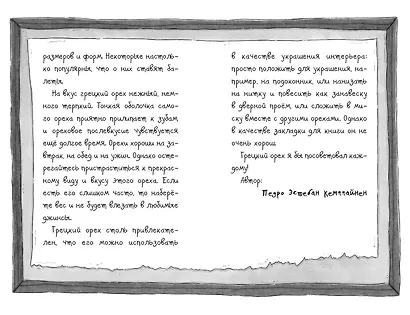 размеров и форм. Некоторые настоль-
ко популярны, что о них ставят ба-
леты.
На вкус грецкий орех нежный, нем-
ного терпкий. Тонкая оболочка само-
го ореха приятно прилипает к зубам,
и ореховое послевкусие чувствуется
ещё долгое время. Орехи хороши на за-
втрак, на обед и на ужин. Однако осте-
регайтесь пристраститься к прекрас-
ному виду и вкусу этого ореха. Если
есть его слишком часто, то наберё-
те вес и не будет влезать в любимые
джинсы.
Грецкий орех столь привлекате-
лен, что его можно использовать
в качестве украшения интерьера:
просто положить для украшения, нап-
ример, на подоконник, или нанизать
на нитку и повесить как занавеску
в дверной проём, или сложить в ми-
ску вместе с другими орехами. Однако
в качестве закладки для книги он не
очень хорош.
Грецкий орех я бы посоветовал каж-
дому!
Автор:
Педро Эстебан Кемппайнен